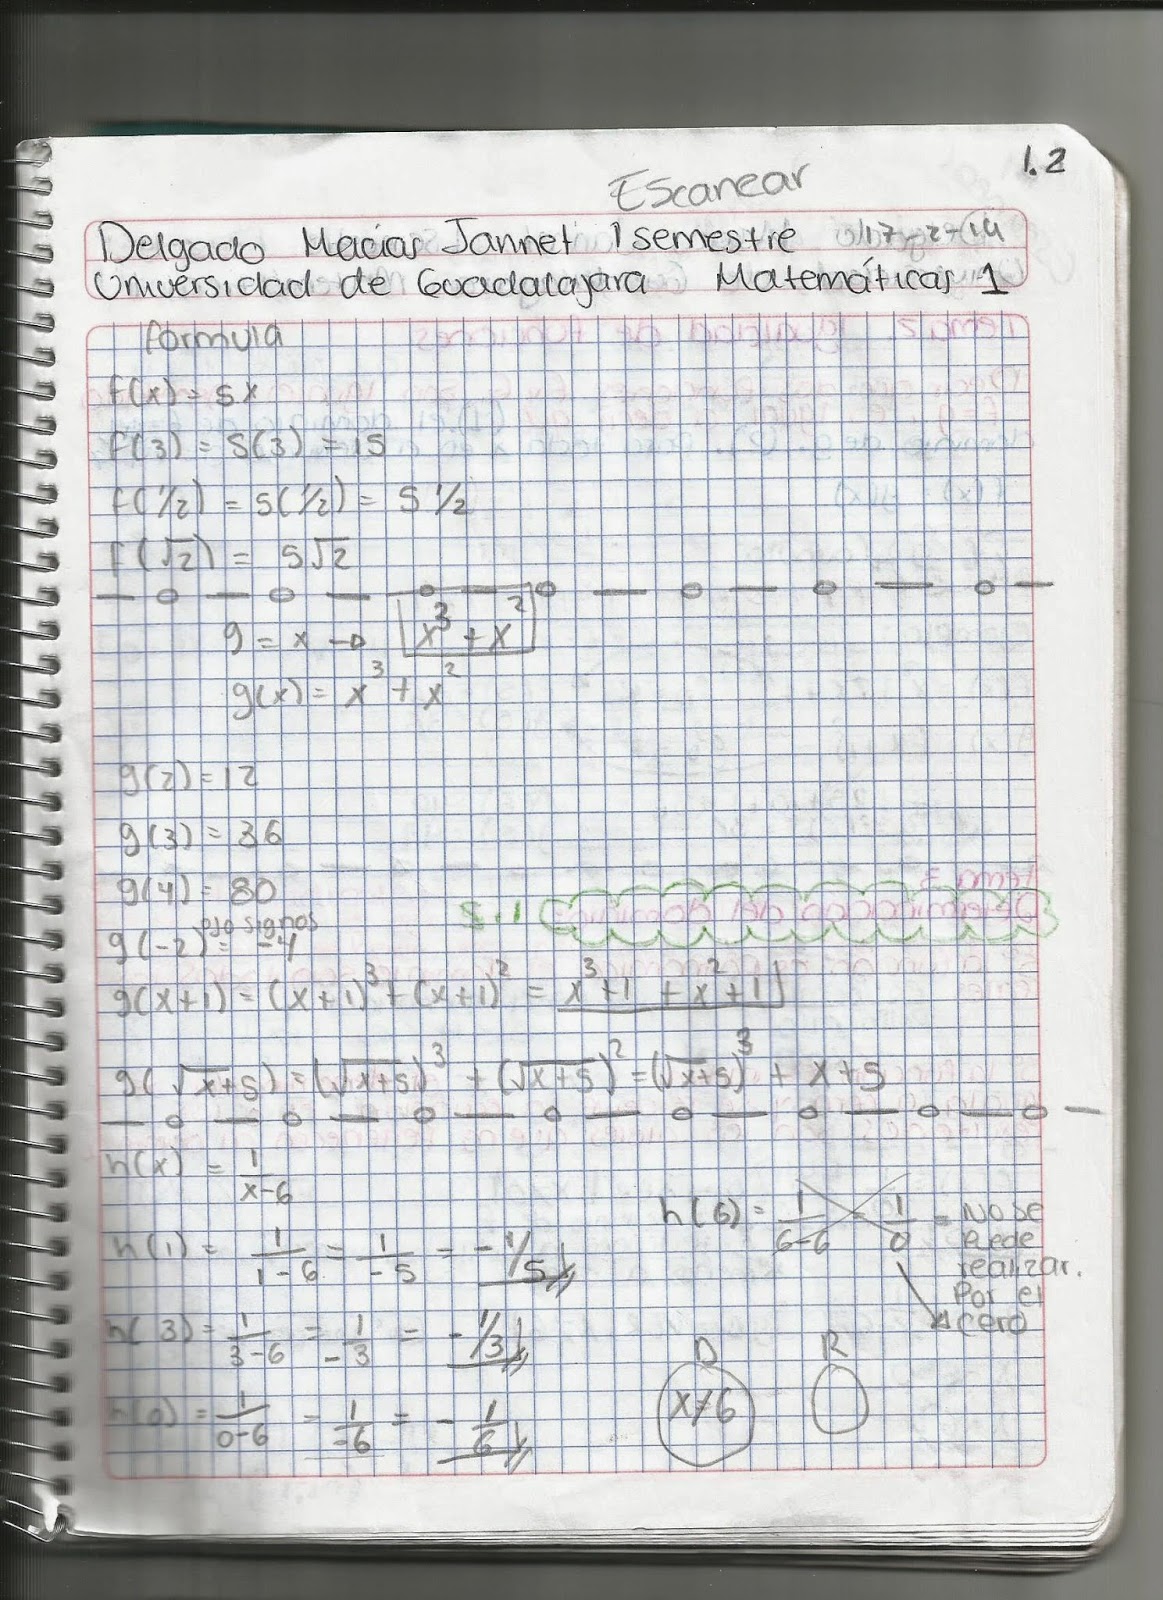 1.2
Escanear
Delgado Macías Jannet 1 semestre 17-2-14
Universidad de Guadalajara Matemáticas 1
formula
f(x) = 5x
f(3) = 5(3) = 15
f(1/2) = 5(1/2) = 5 1/2
f(√2) = 5√2
g = x → x³ + x²
g(x) = x³ + x²
g(2) = 12
g(3) = 36
g(4) = 80
ojo signos
g(-2) = -4
g(x+1) = (x+1)³ + (x+1)² = x³+1 + x²+1
g(√x+5) = (√x+5)³ + (√x+5)² = (√x+5)³ + x+5
h(x) = 1/x-6
h(1) = 1/1-6 = 1/-5 = -1/5
h(3) = 1/3-6 = 1/-3 = -1/3
h(0) = 1/0-6 = 1/-6 = -1/6
h(6) = 1/6-6 = 1/0 = No se
Puede
realizar.
Por el
cero
D R
x≠6